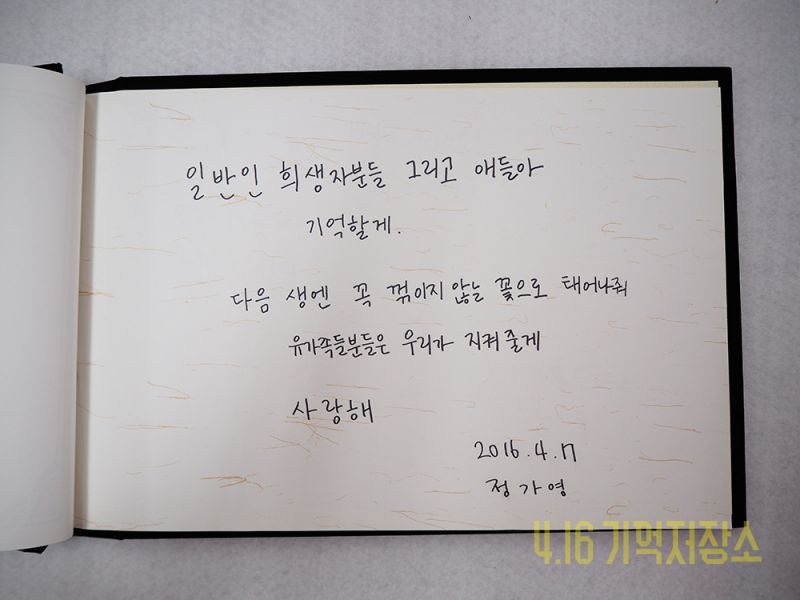 일반인 희생자분들 그리고 애들아
기억할게.
다음 생엔 꼭 꺾이지 않는 꽃으로 태어나줘
유가족들분들은 우리가 지켜줄게
사랑해
2016.4.17
정가영
4.16 기억저장소